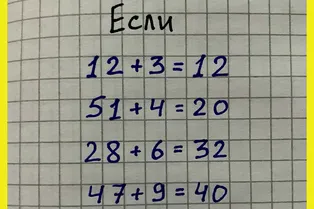 Если
12+3=12
51+4=20
28+6=32
47+9=40